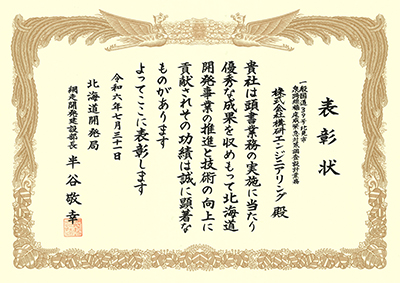 表彰状
一般国道39号北見市
株式会社構研エンジニアリング 殿
貴社は頭書業務の実施に当たり
優秀な成果を収めもって北海道
開発事業の推進と技術の向上に
貢献されその功績は誠に顕著な
ものがあります
よってここに表彰します
令和六年七月三十一日
北海道開発局
網走開発建設部長 半谷敬幸